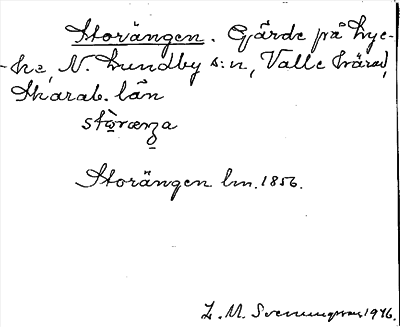 Storängen. Gärde på Lyc-
-ke, N. Lundby s:n, Valle härad,
Skarab. län
stòræŋa
Storängen lm. 1856.
L. M. Svenungsson 1946.